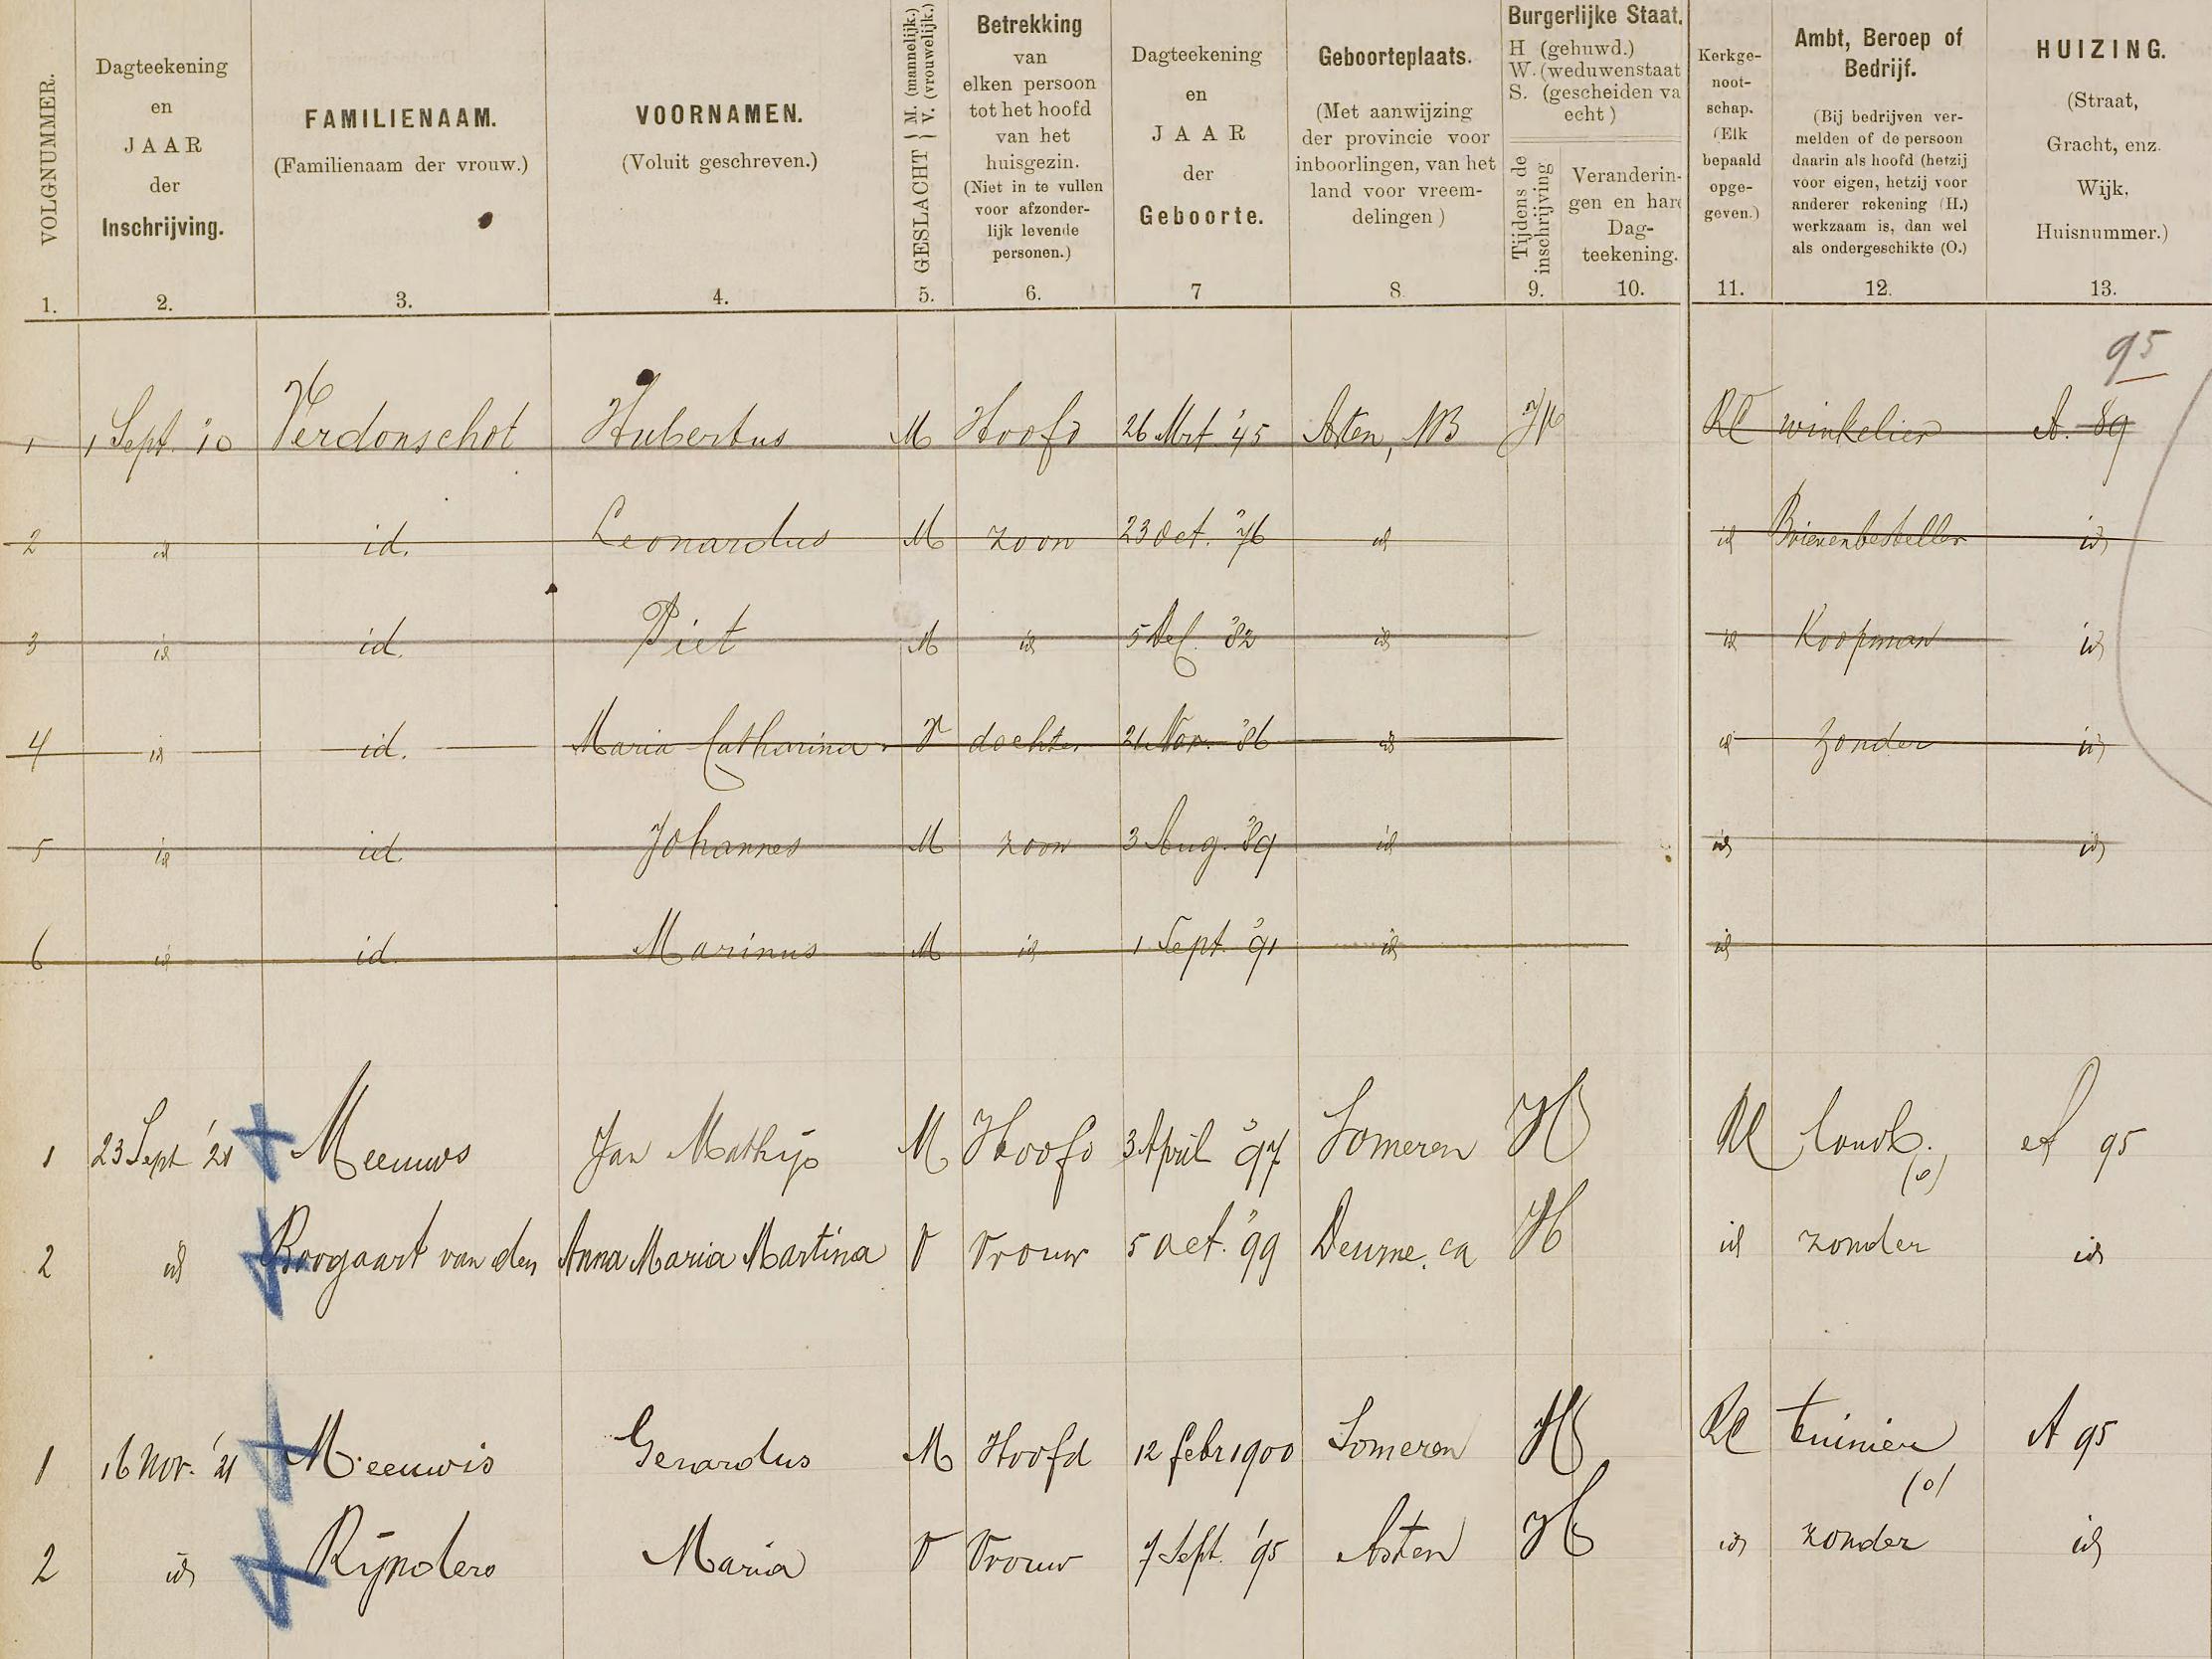 VOLGNUMMER.
1.
Dagteekening
en
JAAR
der
Inschrijving.
2.
FAMILIENAAM.
(Familienaam der vrouw.)
3.
VOORNAMEN.
(Voluit geschreven.)
4.
GESLACHT { M. (mannelijk.)
V. (vrouwelijk.)
5.
Betrekking
van
elken persoon
tot het hoofd
van het
huisgezin.
(Niet in te vullen
voor afzonder-
lijk levende
personen.)
6.
Dagteekening
en
JAAR
der
Geboorte.
7
Geboorteplaats.
(Met aanwijzing
der provincie voor
inboorlingen, van het
land voor vreem-
delingen)
8
Burgerlijke Staat.
H (gehuwd.)
W. (weduwenstaat
S. (gescheiden va
echt)
Tijdens de
inschrijving
9.
Veranderin-
gen en hare
Dag-
teekening.
10.
Kerkge-
noot-
schap.
(Elk
bepaald
opge-
geven.)
11.
Ambt, Beroep of
Bedrijf.
(Bij bedrijven ver-
melden of de persoon
daarin als hoofd (hetzij
voor eigen, hetzij voor
anderer rekening (H.)
werkzaam is, dan wel
als ondergeschikte (O.)
12.
HUIZING.
(Straat,
Gracht, enz.
Wijk,
Huisnummer.)
13.
95
1 1 Sept. '10 Verdonschot Hubertus M Hoofd 26 Mrt. '45 Asten, NB RC winkelier A. 89
2 id id. Leonardus M zoon 23 Oct. '76 id id Brievenbesteller id
3 id id. Piet M id 5 Dec. '82 id id Koopman id
4 id id. Maria Catharina V dochter 21 Nov. '86 id id zonder id
5 id id. Johannes M zoon 3 Aug. '89 id id id
6 id id. Marinus M id 1 Sept. '91 id id
1 23 Sept '21 Meeuws Jan Mathijs M Hoofd 3 April '97 Someren H RC landb. (o) A 95
2 id Boogaart van den Anna Maria Martina V Vrouw 5 Oct. '99 Deurne. ca H id zonder id
1 16 Nov. '21 Meeuwis Gerardus M Hoofd 12 febr 1900 Someren H RC tuinier (o) A 95
2 id Rijnders Maria V Vrouw 7 Sept. '95 Asten H id zonder id